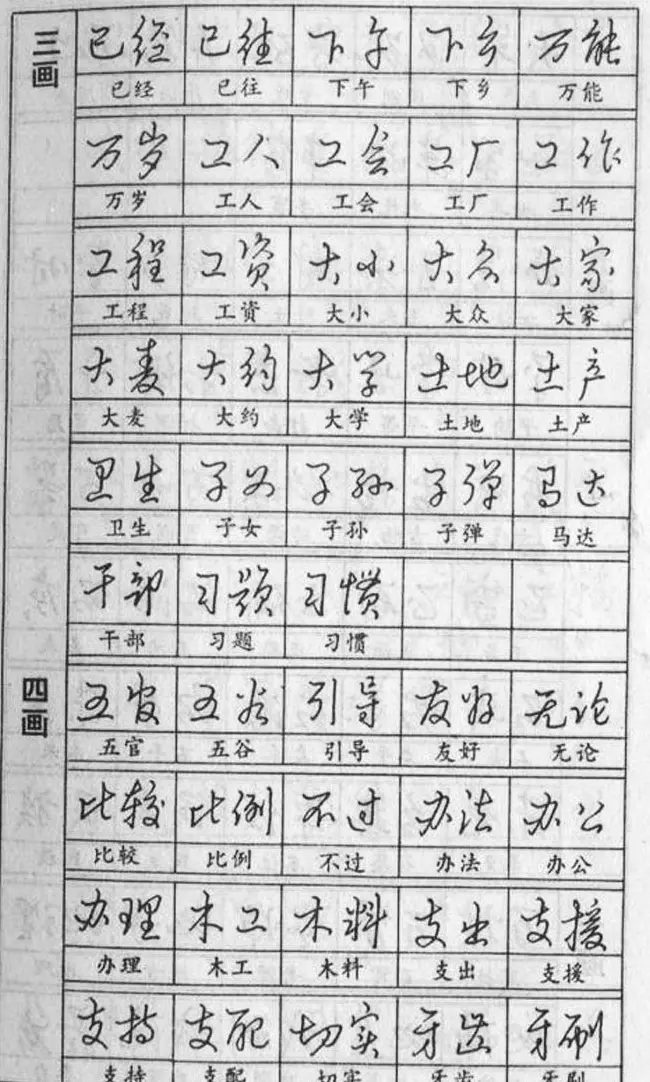 三画
已经 已往 下午 下乡 万能
已经 已往 下午 下乡 万能
万岁 工人 工会 工厂 工作
万岁 工人 工会 工厂 工作
工程 工资 大小 大众 大家
工程 工资 大小 大众 大家
大麦 大约 大学 土地 土产
大麦 大约 大学 土地 土产
卫生 子女 子孙 子弹 马达
卫生 子女 子孙 子弹 马达
干部 习题 习惯
干部 习题 习惯
四画
五官 五谷 引导 友好 无论
五官 五谷 引导 友好 无论
比较 比例 不过 办法 办公
比较 比例 不过 办法 办公
办理 木工 木料 支出 支援
办理 木工 木料 支出 支援
支持 支配 切实 牙齿 牙刷
支持 支配 切实 牙齿 牙刷